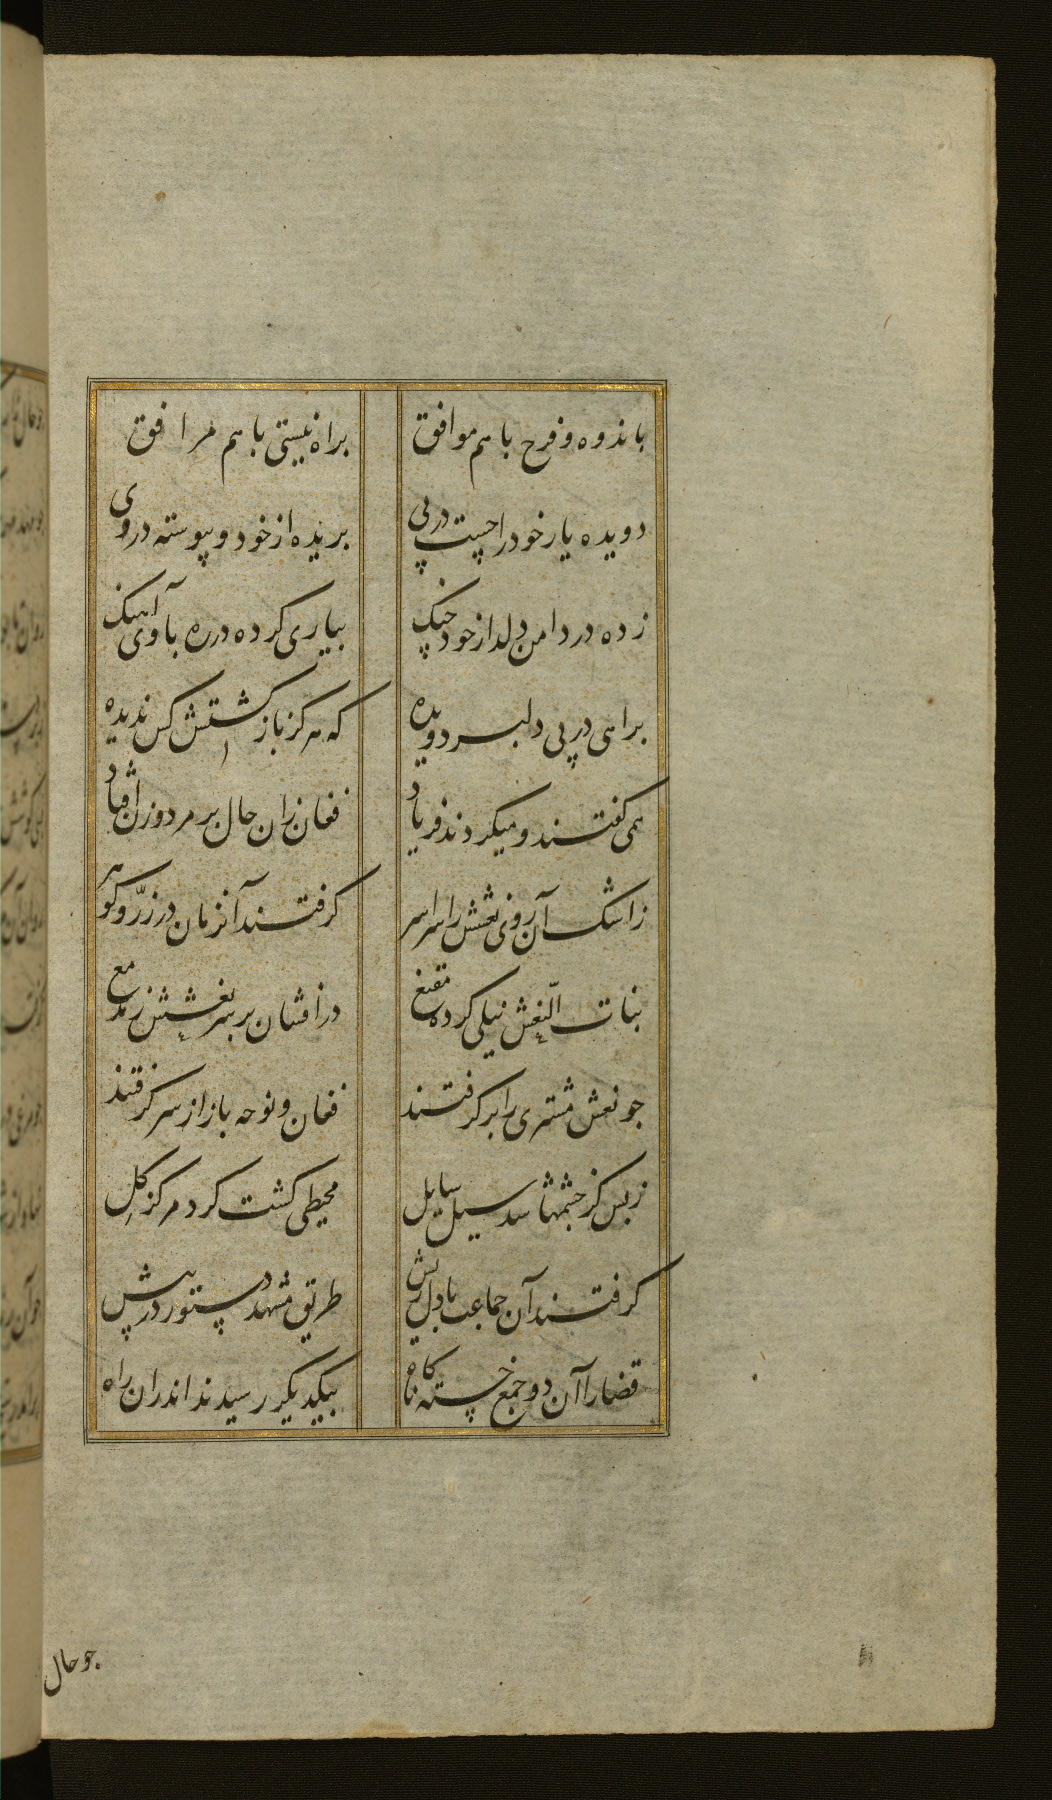 باندوه و فرح باهم موافق براه نیستی باهم مرافق
دویده یار خود را چست در پی بریده از خود و پیوسته در وی
زده در دامن دلدار خود چنک بیاری کرده در ره با وی آهنک
براهی در پی دلبر دویده که هرکز باز کشتش کس ندیده
همی کفتند و میکردند فریاد فغان زان حال بر مرد و زن افتاد
ز اشک آن روی نعشش را سراسر کرفتند آنزمان در زرّ و کوهر
بنات النّعش نیلی کرده مقنع درافشان بر سر نعشش ز مدمع
جو نعش مشتری را برکرفتند فغان و نوحه باز از سر کرفتند
ز بس کز جشمها شد سیل سایل محیطی کشت کرد مرکز کل
کرفتند آن جماعت با دل ریش طریق مشهد دستور در پیش
قضا را آن دو جمع خسته ناکاه بیکدیکر رسیدند اندران راه
جو حال